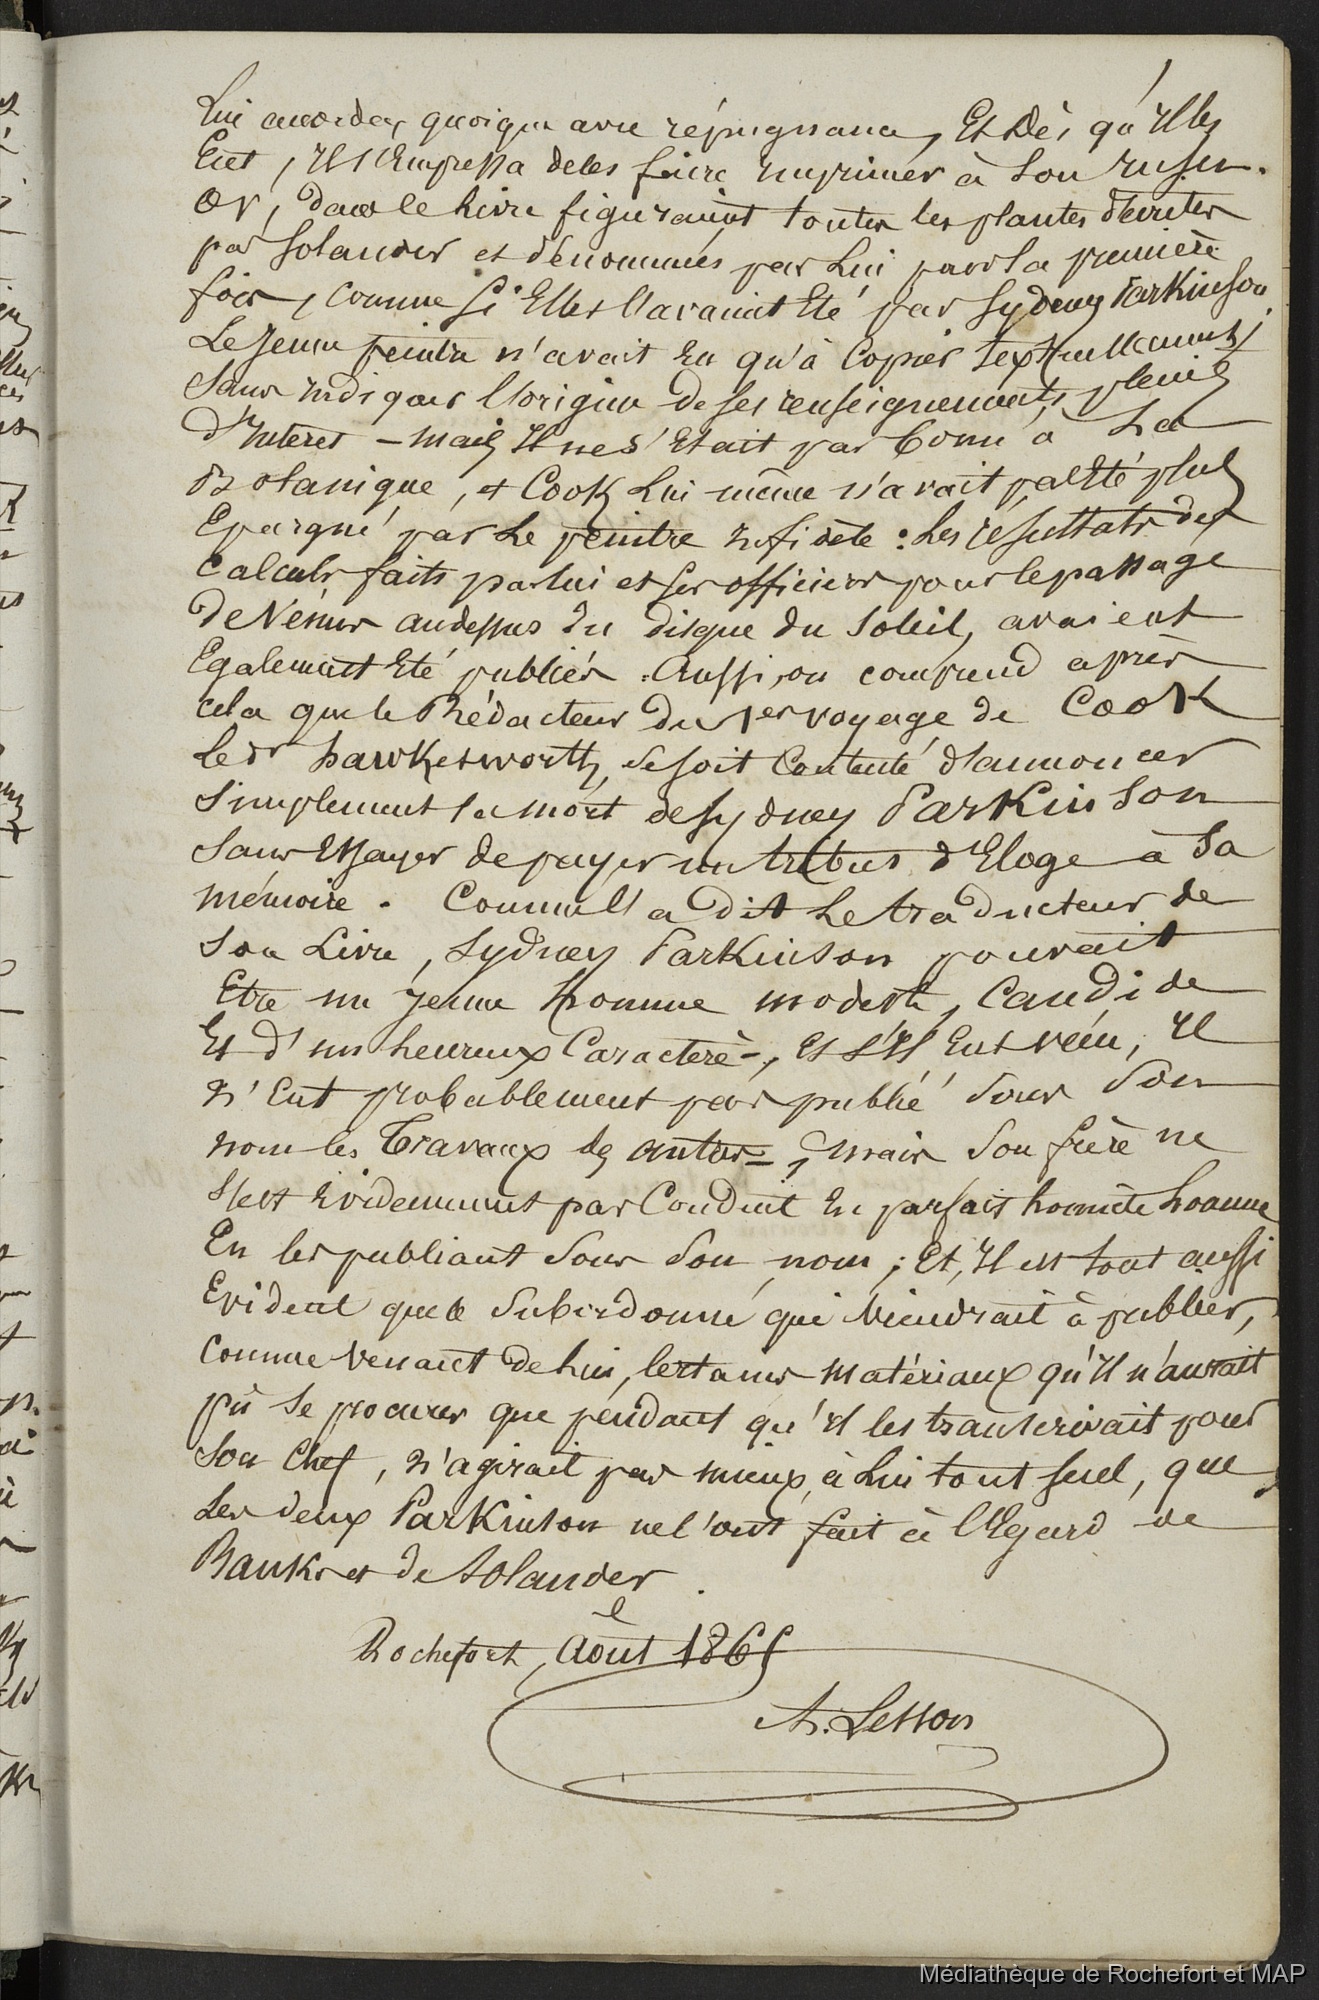 Lui accorder, quoique avec répugnance, Et Dès qu'Il les
Eut, Il s'Empressa de les faire Imprimer à son insu.
Or, dans le livre figuraient toutes les plantes décrites
par Solander et dénommées par Lui pour la première
fois, comme si Elles l'avaient Eté par Sydney Parkinson
Le jeune peintre n'avait Eu qu'à Copier textuellement,
sans indiquer l'origine de ses renseignements pleins
d'Intérêt - mais Il ne s'Etait pas borné à La
Botanique, et Cook Lui même n'avait pas Eté plus
Epargné par Le peintre infidèle : Les résultats des
Calculs faits par lui et ses officiers pour le passage
de Vénus au dessus du disque du Soleil, avaient
Egalement Eté publiés. Aussi, on comprend après
cela que le Rédacteur Du 1er voyage de Cook
le dr hawkesworth, se soit Contenté d'annoncer
Simplement la mort de Sydney Parkinson
Sans Essayer de payer un tribut d'Eloge à Sa
mémoire. Comme l'a dit Le traducteur de
Son Livre, Sydney Parkinson pouvait
Etre un jeune homme modeste, Candide
Et d'un heureux Caractère -, Et s'Il Eut vécu, Il
n'Eut probablement pas publié sous son
nom les Travaux des autres -, mais Son frère ne
s'est Evidemment pas Conduit En parfait honnête homme
En les publiant Sous Son nom ; Et, Il est tout aussi
Evident que le Subordonné qui viendrait à publier,
Comme venant de lui, certains matériaux qu'Il n'aurait
pû Se procurer que pendant qu'Il les transcrivait pour
Son Chef, n'agirait pas mieux, à Lui tout seul, que
Les deux Parkinson ne l'ont fait à l'Egard de
Banks et de Solander.
Rochefort, Août 1865
A. Lesson
Médiathèque de Rochefort et MAP